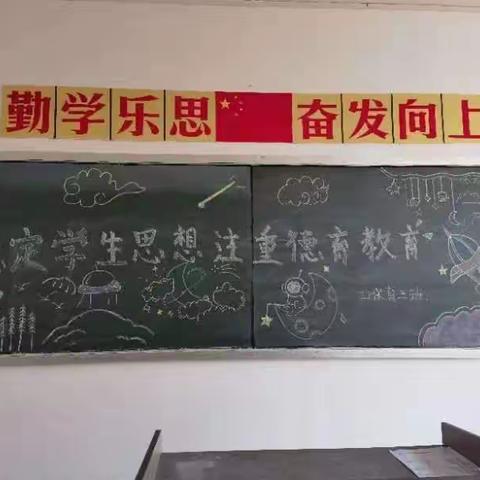 勤学乐思 奋发向上
定学生思想注重德育教育